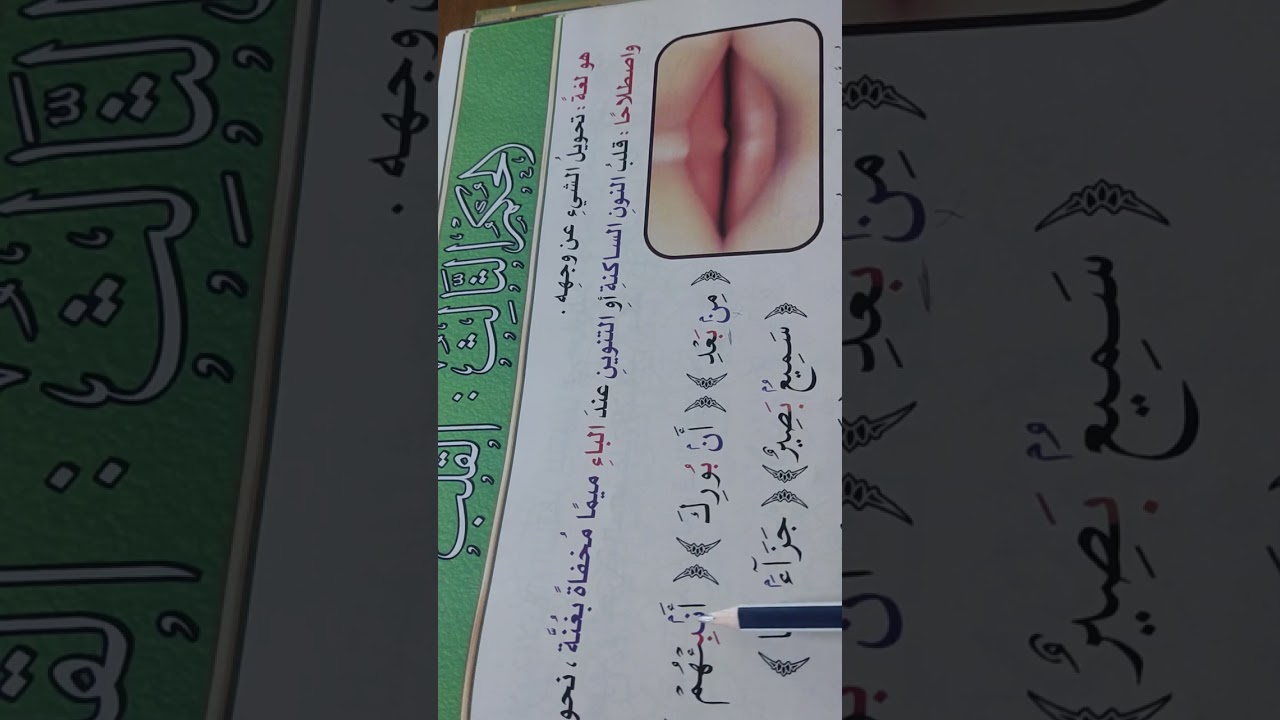 الحُكْمُ الثَّالِثُ : القَلْبُ
هو لغةً : تحويلُ الشيءِ عن وجهِه .
واصطلاحًا : قلبُ النونِ الساكنةِ أو التنوينِ عندَ الباءِ ميمًا مُخفاةً بغُنَّة ، نحو
﴿ مِنۢ بَعْدِ ﴾ ﴿ أَنۢ بُورِكَ ﴾ ﴿ أَنۢبِئْهُمْ
﴿ سَمِيعٌۢ بَصِيرٌ ﴾ ﴿ جَزَآءَۢ ﴾